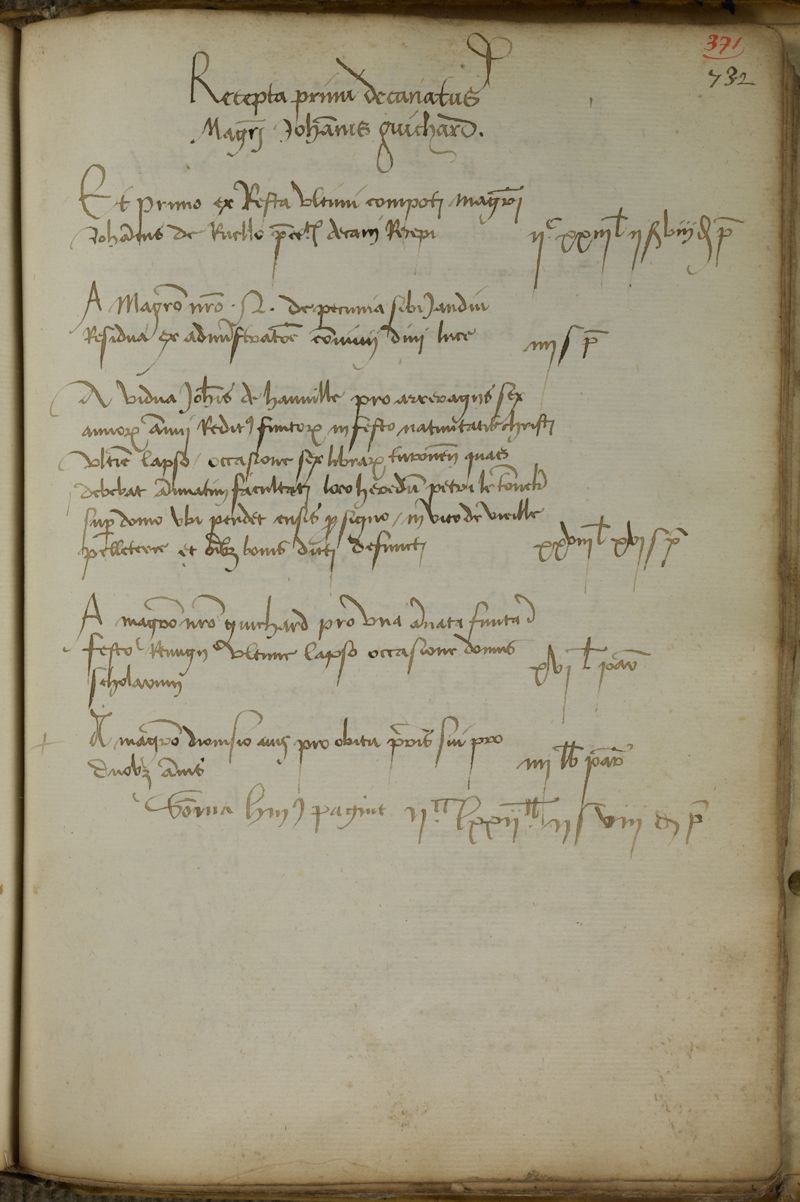 371
732
Recepta primi decanatus
Magri Johānis guichard.
Et primo ex Resta ultimi compoti magri
Johānis de Ruello decani Recepi
ijc xxiiij l ij s viij d p
A Magrō nrō de pecunia sibi
Residua ex adminstratōe divi luce
iiij s p
A vidua Johis de hanville pro arreragiis sex
annorum annui Reditus finitorum in festo nativitatis christi
ultīe lapso / occasione sex librarum turonen quas
debebat annuatim facultati loco heredum petri le
sup domo ubi pendet ensis p signo / in vico de vieille
pelleterie et bonis dicti defuncti
xxviij l xvj s p
A magrō nrō guichard pro una annata finita
festo Remigii ultime lapso occasione domus
scholarum
xvj l par
A magrō dionisio pro obitu pris sui pro
duobz annis
iiij lb par
Sōma hui pagine ijc lxxij lb ij s viij d p